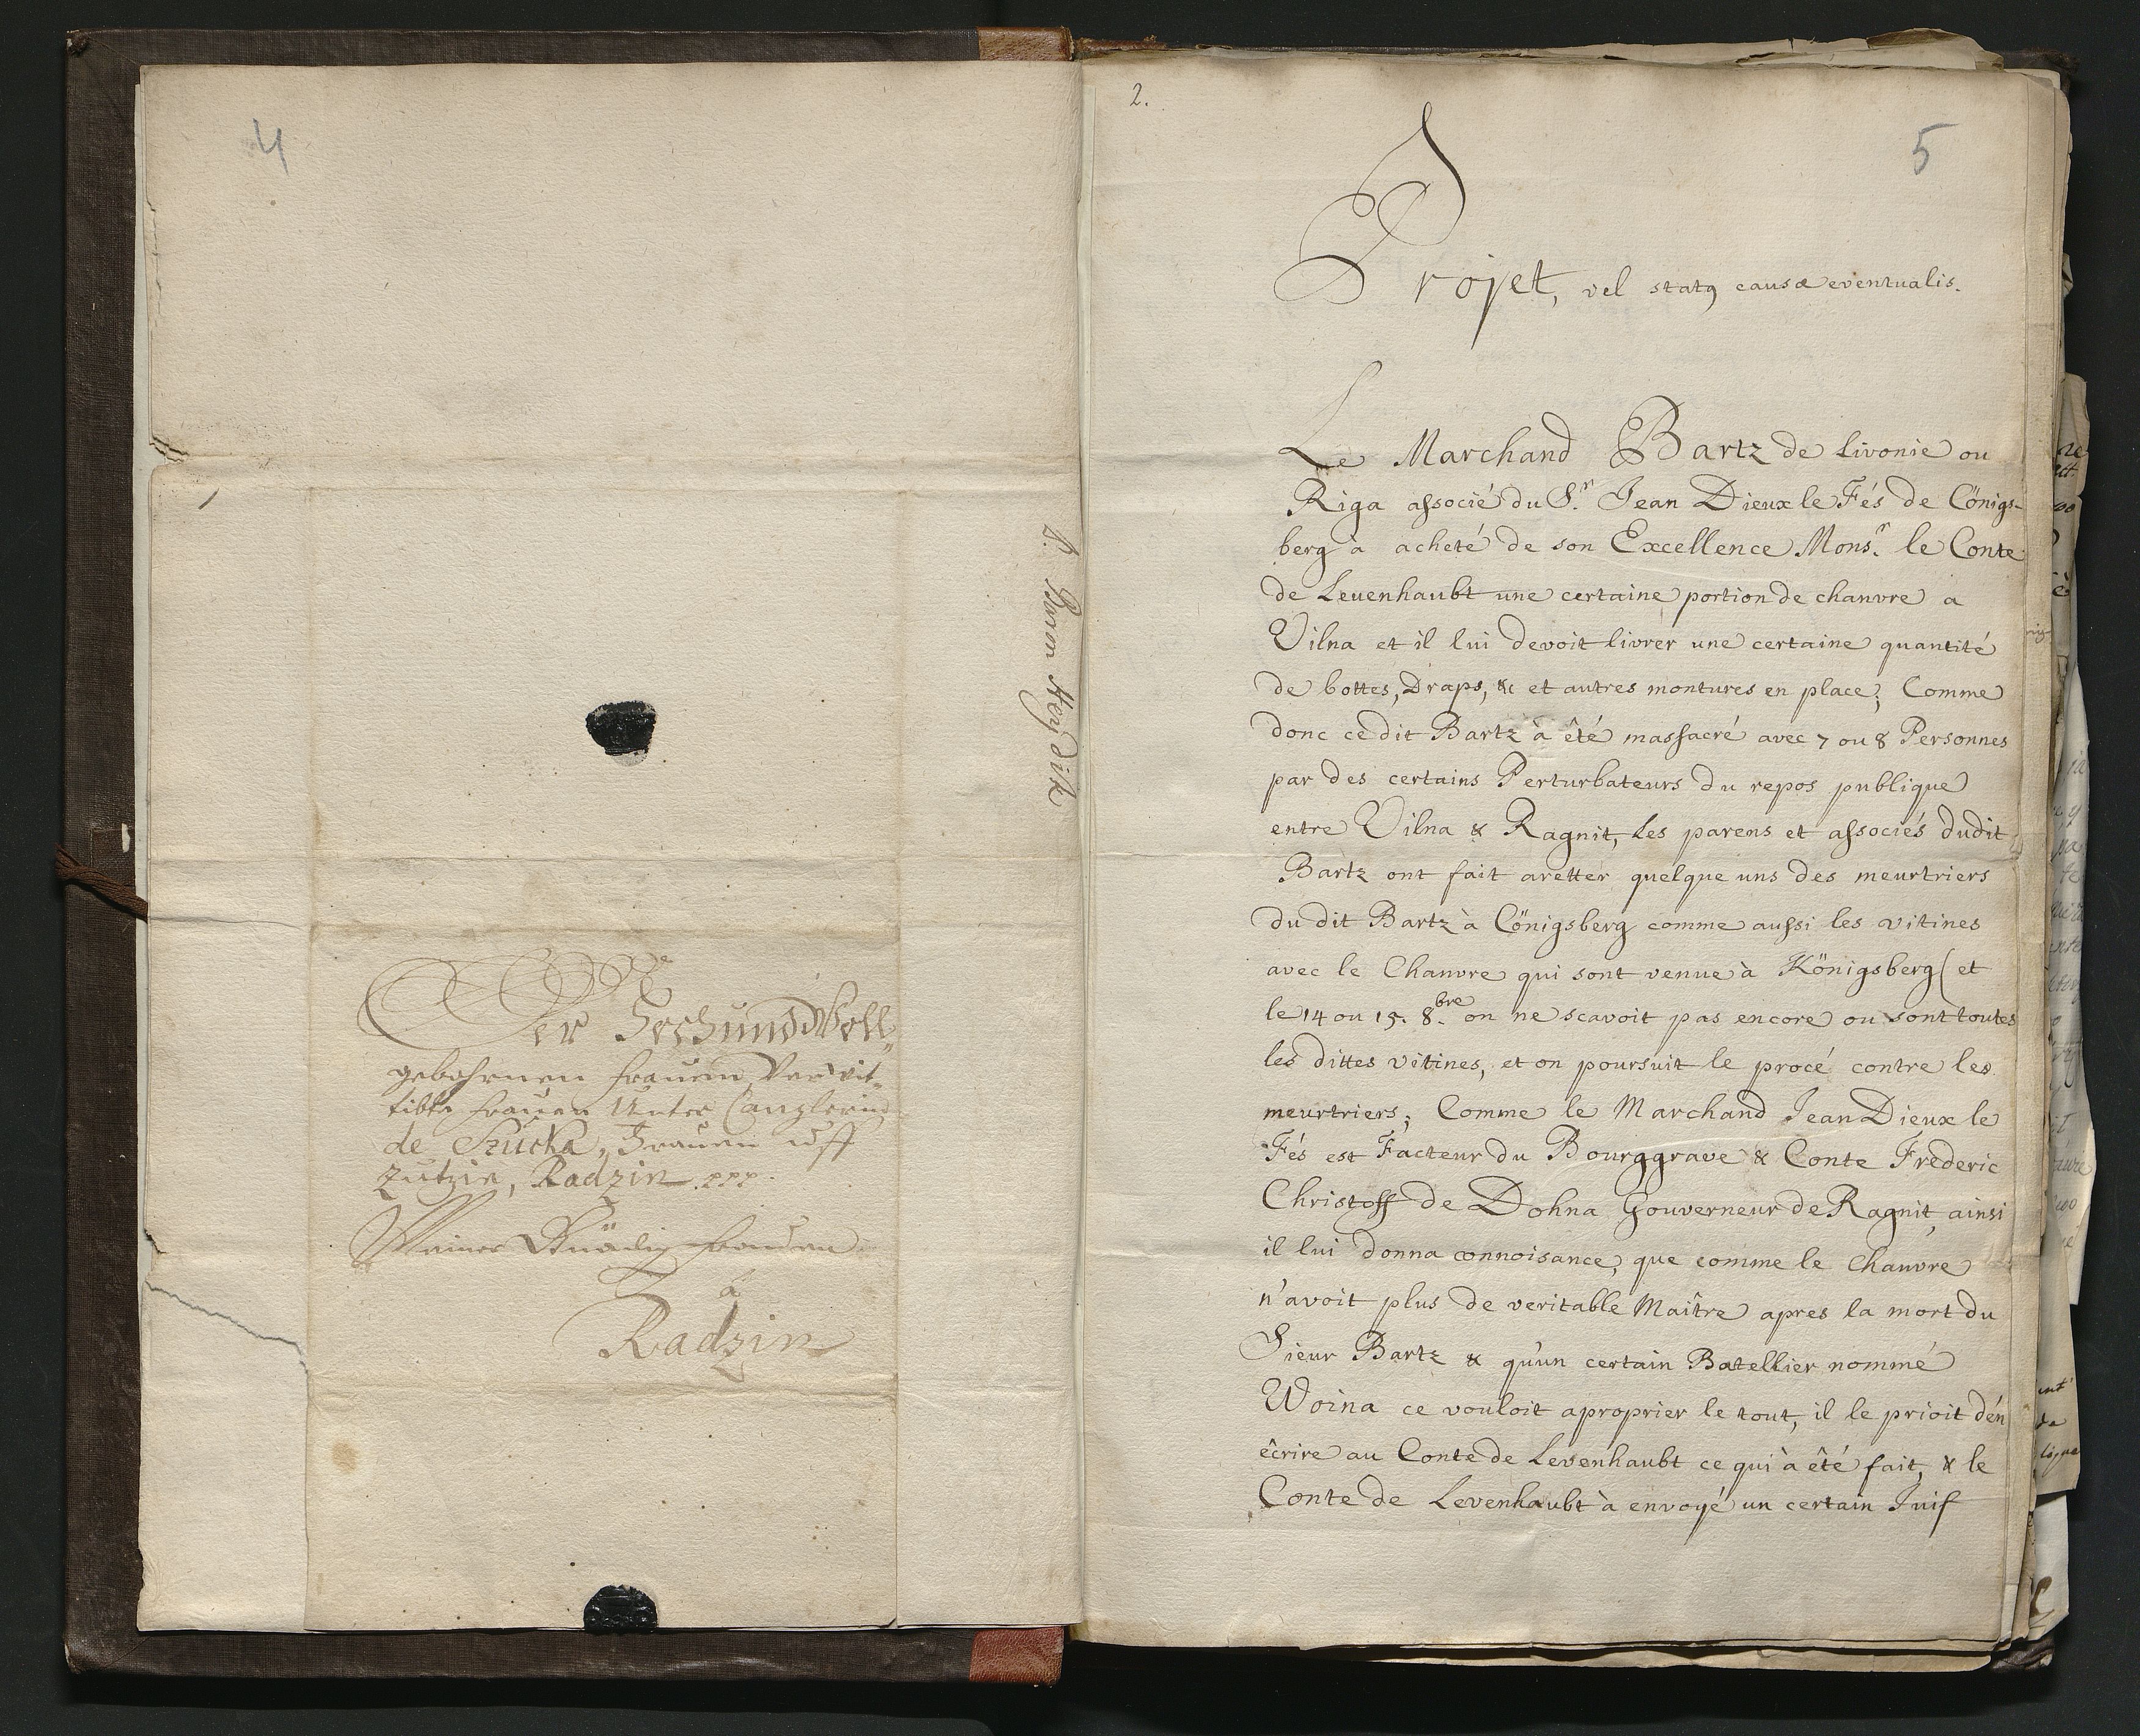 4
1. Baron Heydik
Der Hoch und Woll„
gebohrnen Frauen Verwit„
tibte Frauen Unter Canzlerin
de Szucka, Frauen uff
Radzin ppp.
Meiner Gnädig Frauen
à
Radzin
2.
5
Projet, vel statq causæ eventualis.
Le Marchand Bartz de Livonie ou
Riga associé du S.r Jean Dieux le Fés de Cönigs-
berg à acheté de son Excellence Mons.r le Conte
de Leuenhaubt une certaine portion de chanvre a
Vilna et il lui devoit livrer une certaine quantité
de bottes, Draps, &c et autres montures en place; Comme
donc ce dit Bartz à êté massacré avec 7 ou 8 Personnes
par des certains Perturbateurs du repos publique
entre Vilna & Ragnit, Les parens et associés dudit
Bartz ont fait aretter quelque uns des meurtriers
du dit Bartz à Cönigsberg comme aussi les vitines
avec le Chanvre qui sont venue à Königsberg (et
le 14 ou 15. 8.bre on ne scavoit pas encore ou sont toutes
les dittes vitines, et on poursuit le procé contre les
meurtriers; Comme le Marchand Jean Dieux le
Fés est Facteur du Bourggrave & Conte Frederic
Christoff de Dohna Gouverneur de Ragnit, ainsi
il lui donna connoisance, que comme le Chanvre
n'avoit plus de veritable Maître apres la mort du
Sieur Bartz & qu'un certain Batellier nommé
Woina ce vouloit aproprier le tout, il le prioit d'en
êcrire au Conte de Levenhaubt ce qui à êté fait, & le
Conte de Levenhaubt à envoyé un certain Juif